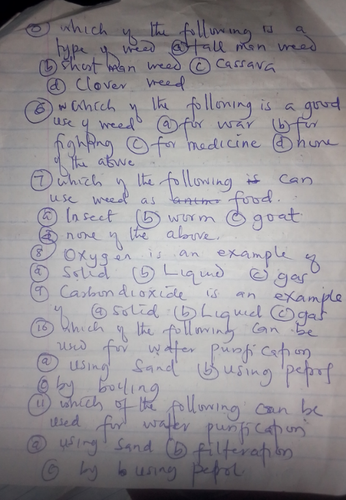 ⑤ which of the following is a
type of weed ⓐ tall man weed
ⓑ short man weed ⓒ Cassava
ⓓ Clover weed
⑥ which of the following is a good
use of weed ⓐ for war ⓑ for
fighting ⓒ for medicine ⓓ none
of the above
⑦ which of the following is can
use weed as food.
ⓐ Insect ⓑ worm ⓒ goat
ⓓ none of the above.
⑧ Oxygen is an example of
ⓐ Solid ⓑ Liquid ⓒ gas
⑨ Carbondioxide is an example
of ⓐ Solid ⓑ Liquid ⓒ gas
⑩ which of the following can be
used for water purification
ⓐ using sand ⓑ using petrol
ⓒ by boiling
⑪ which of the following can be
used for water purification
ⓐ using sand ⓑ filteration
ⓒ by b using petrol